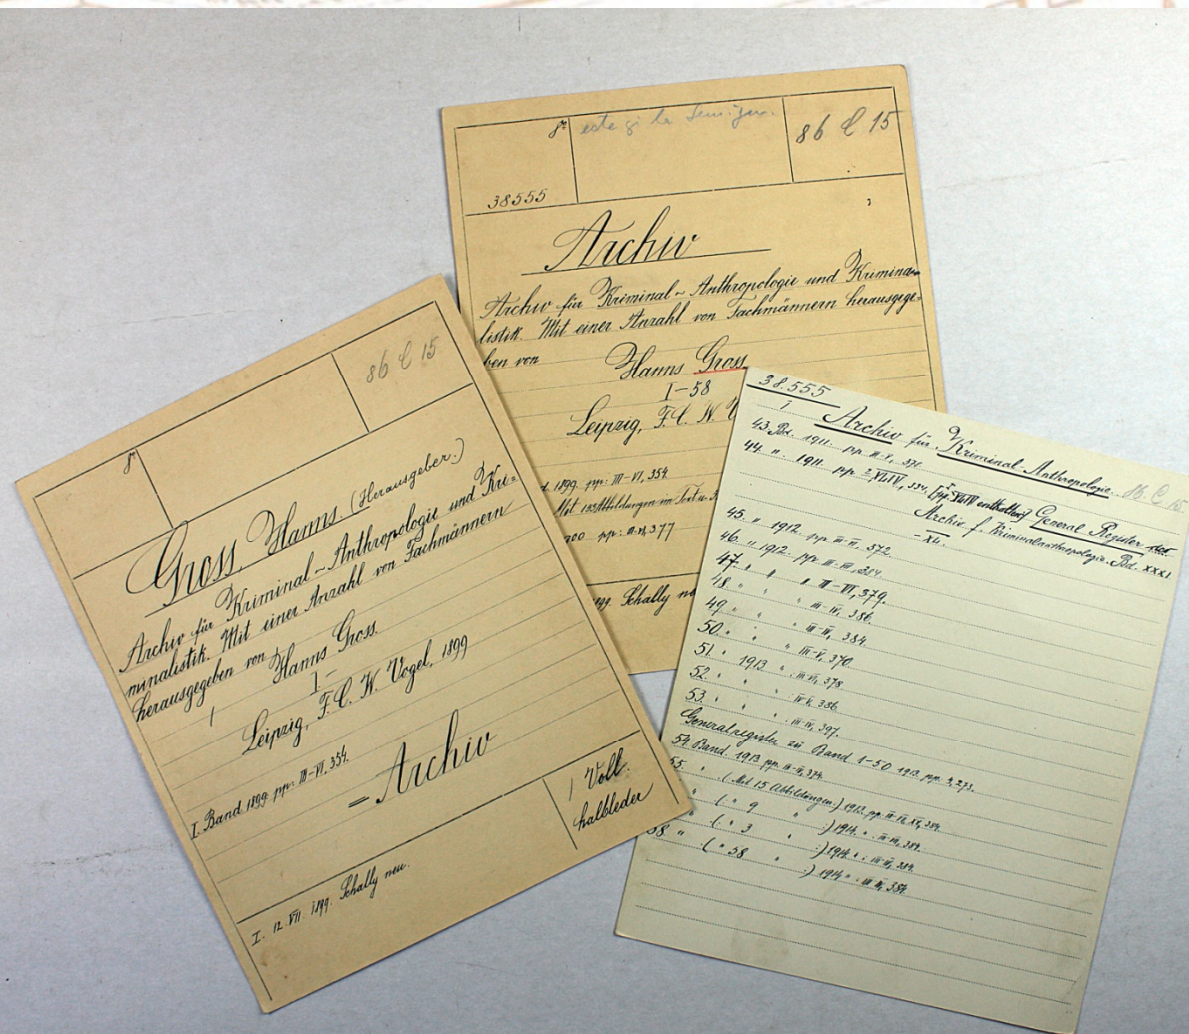 8°
86 C 15
Gross, Hanns (Herausgeber.)
Archiv für Kriminal-Anthropologie und Kri=
minalistik. Mit einer Anzahl von Fachmännern
herausgegeben von Hanns Gross.
I-
Leipzig, F. C. W. Vogel, 1899
I. Band 1899. pp: III-VI, 354.
= Archiv
1 Voll.
halbleder
I. 12. VII. 1899. Schally neu.
8°
86 C 15
38555
Archiv
Archiv für Kriminal-Anthropologie und Krimina=
listik. Mit einer Anzahl von Fachmännern herausgege=
ben von
Hanns Gross
I-58
Leipzig, F. C. W. V
1899. pp: III-VI, 354.
Abbildungen im Text
900 pp: III-VI, 377
99. Schally
38.555
Archiv für Kriminal-Anthropologie. 86. C 15
43. Bd. 1911. pp. III-V,
44. " 1911. pp. General-Register
Archiv f. Kriminalanthropologie. Bd. XXXI
-XL.
45. " 1912. pp. III-VI, 372.
46. " 1912. pp. III-VI, 384.
47. " " " III-VI, 379.
48 " " " III-VI, 386.
49 " " " III-VI, 384.
50. " " " III-V, 370.
51. " 1913 " III-VI, 378.
52. " " " 386.
53. " " " 397.
Generalregister zu Band 1-50 1913. pp. 233.
54 Band. 1913. pp.
55. " (Mit 15 Abbildungen.) 1913. pp.
" ( " 9 " :) 1914. " 384.
" ( " 3 " :) 1914. " 384.
58 " ( " 58 " :) 1914 " 384.